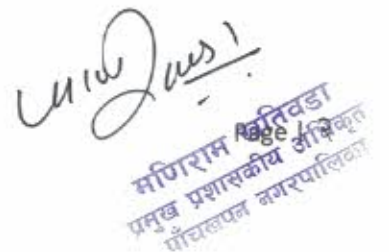 Page | 3
मणिराम खतिवडा
प्रमुख प्रशासकीय अधिकृत
पाँचखपन नगरपालिका